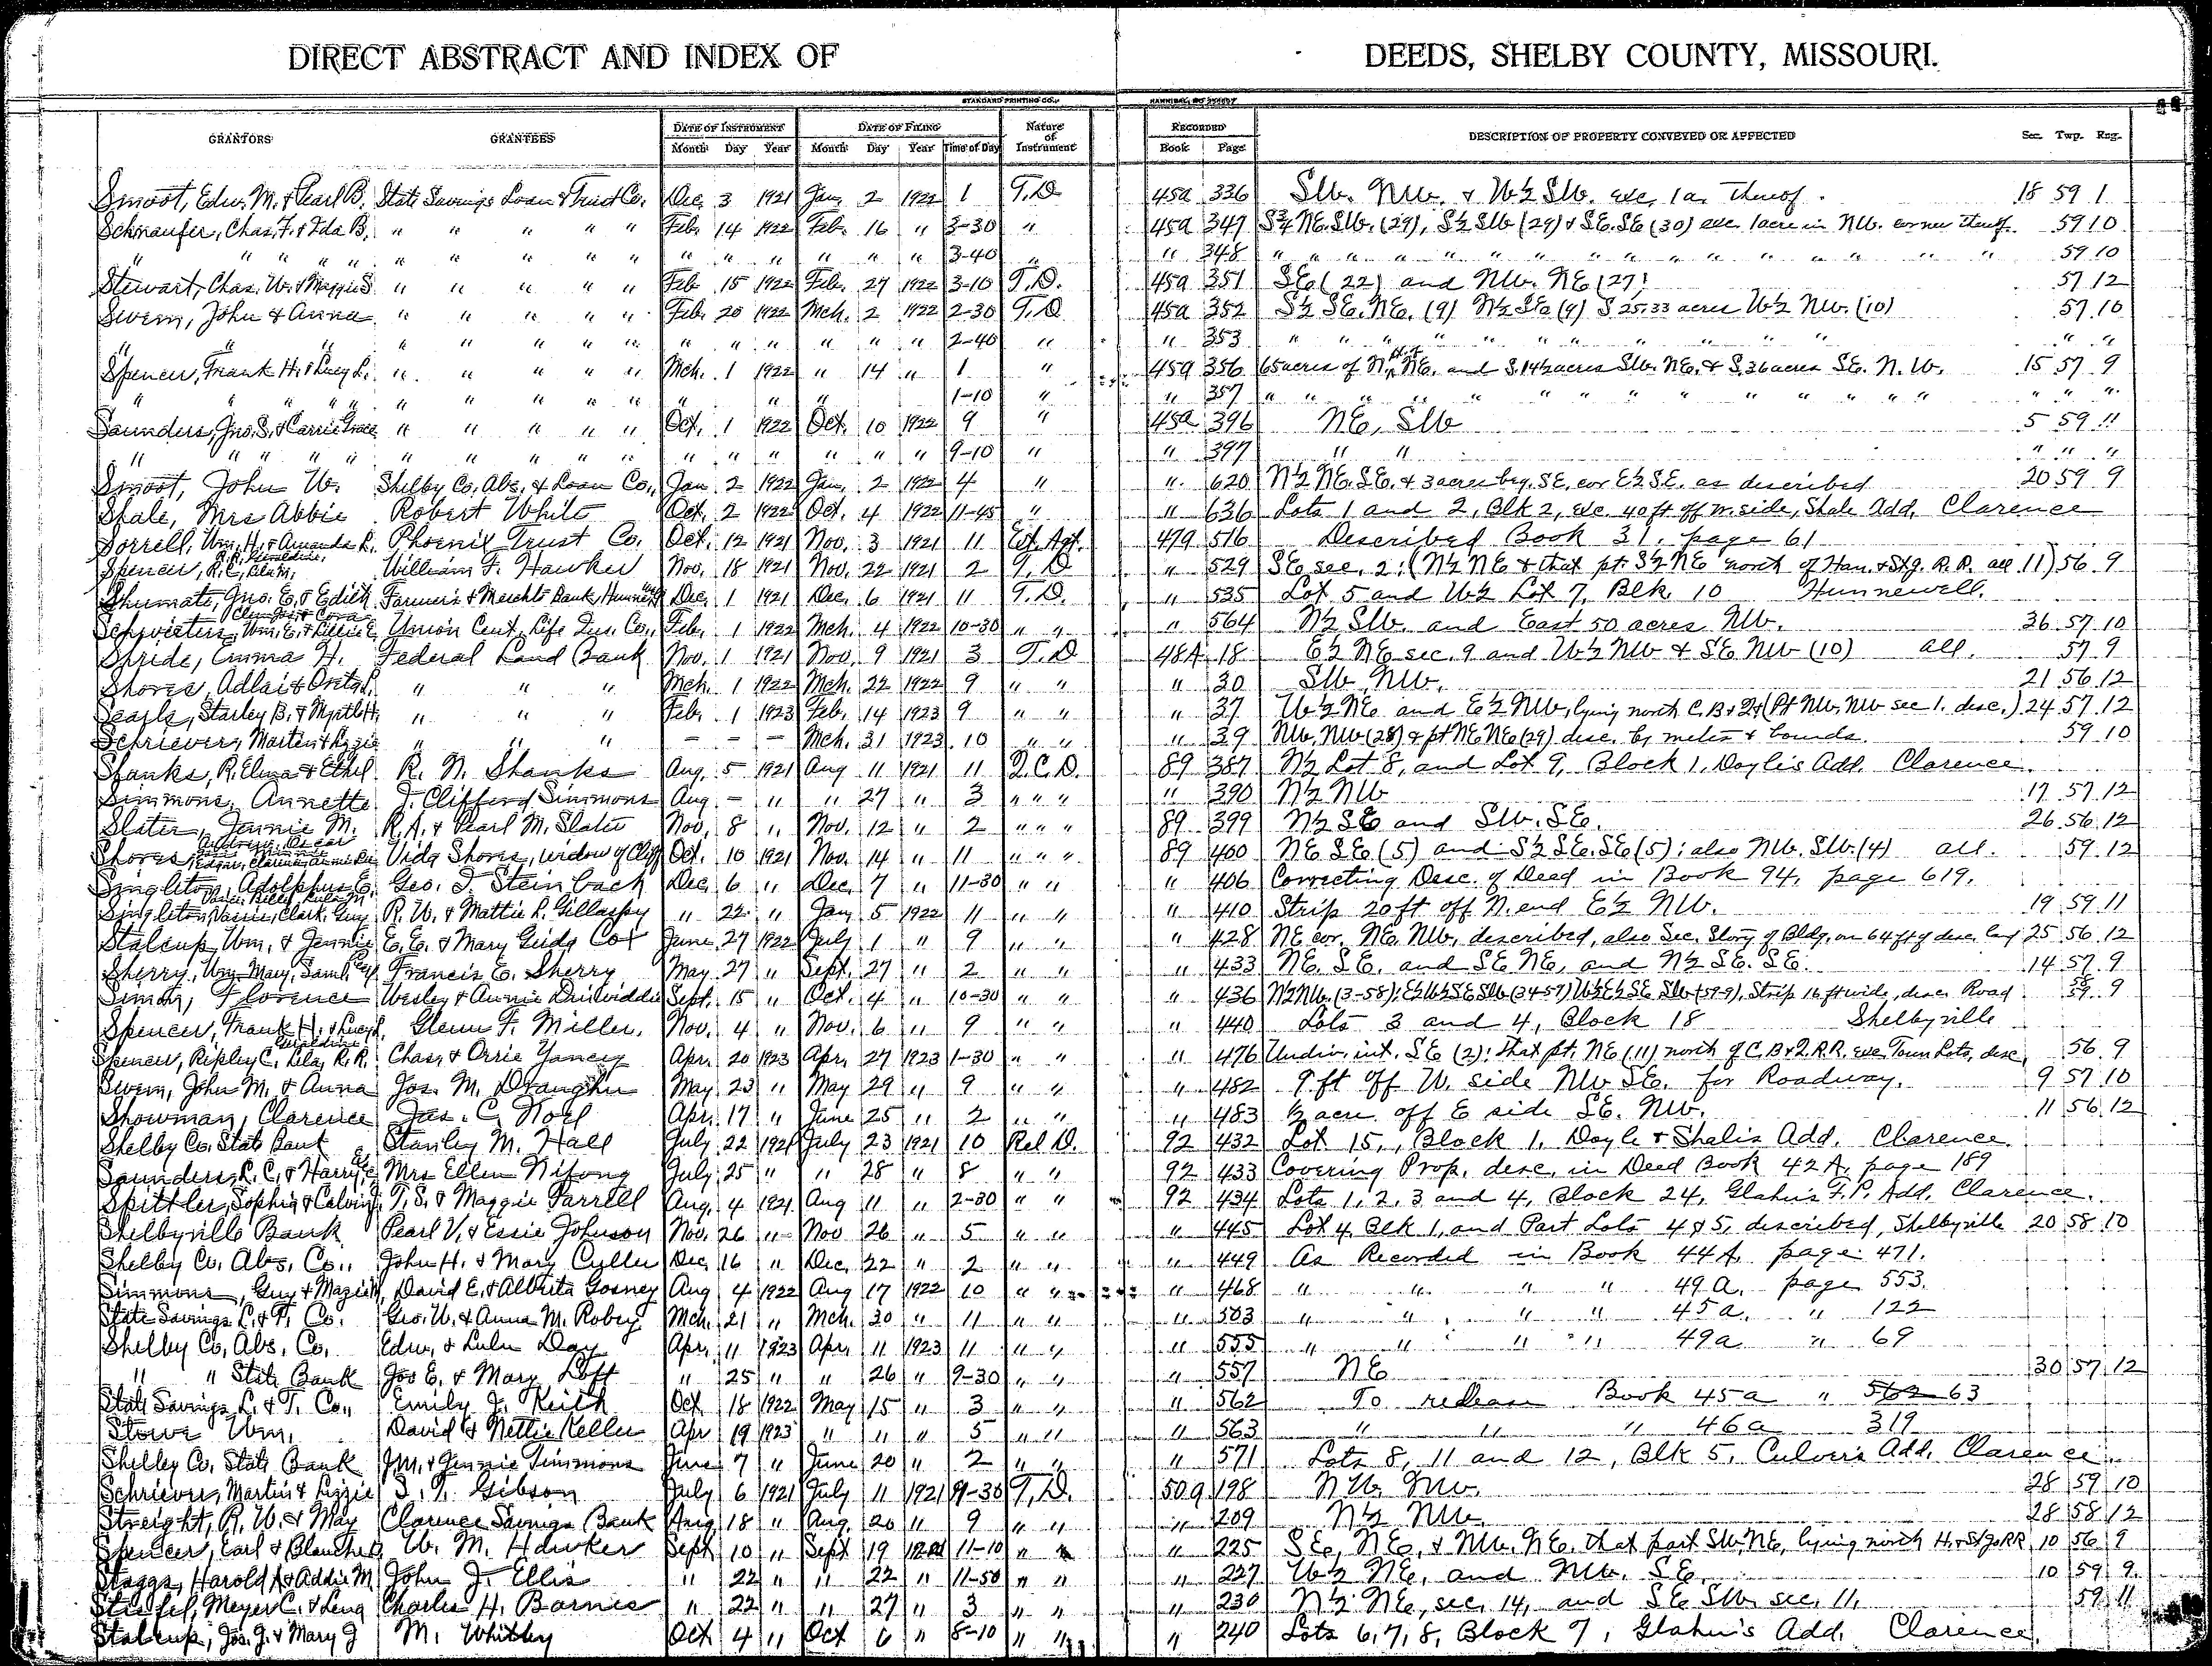 DIRECT ABSTRACT AND INDEX OF DEEDS, SHELBY COUNTY, MISSOURI.
STANDARD PRINTING CO. HANNIBAL, MO
GRANTORS GRANTEES DATE OF INSTRUMENT DATE OF FILING Nature of Instrument RECORDED DESCRIPTION OF PROPERTY CONVEYED OR AFFECTED Sec. Twp. Rng.
Month Day Year Month Day Year Time of Day Book Page
Smoot, Edw. M. & Pearl B. State Savings Loan & Trust Co. Dec. 3 1921 Jan. 2 1922 1 T.D. 45a 336 SW. NW. & W½ SW. exc. 1a. thereof. 18 59 1
Schnaufer, Chas. F. & Ida B. " " " " " Feb. 14 1922 Feb. 16 " 3-30 " 45a 347 S¾ NE. SW. (29), S½ SW (29) & SE. SE (30) exc. 1 acre in NW. corner thereof. 59 10
" " " " " " " " " " " " " " " " 3-40 " " 348 " " " " " " " " " " 59 10
Stewart, Chas. W. & Maggie S. " " " " " Feb 15 1922 Feb. 27 1922 3-10 T.D. 45a 351 SE (22) and NW. NE (27) 57 12
Swem, John & Anna " " " " " Feb. 20 1922 Mch. 2 1922 2-30 T.D 45a 352 S½ SE. NE. (9) N½ SE (9) S 25.33 acres W½ NW. (10) 57 10
" " " " " " " " " " " " " " 2-40 " " 353 " " " " " " " " " "
Spencer, Frank H. & Lucy L. " " " " " Mch. 1 1922 " 14 " 1 " 45a 356 65 acres of N. pt. of NE. and S. 14½ acres SW. NE. & S. 36 acres SE. N. W. 15 57 9
" " " " " " " " " " " " 1-10 " " 357 " " " " " " " " " "
Saunders, Jno. S. & Carrie Grace " " " " " Oct. 1 1922 Oct. 10 1922 9 " 45a 396 NE, SW 5 59 11
" " " " " " " " " " " " " " " " 9-10 " " 397 " " " " "
Smoot, John W. Shelby Co. Abs. & Loan Co., Jan. 2 1922 Jan. 2 1922 4 " " 620 N½ NE. SE. & 3 acres beg. SE. cor E½ SE. as described 20 59 9
Shale, Mrs Abbie Robert White Oct. 2 1922 Oct. 4 1922 11-45 " " 636 Lots 1 and 2, Blk 2, exc. 40 ft off N. side, Shale Add. Clarence
Sorrell, Wm. H. & Amanda R. Phoenix Trust Co. Oct. 12 1921 Nov. 3 1921 11 Ext. Agt. 47a 516 Described Book 31, page 61
Spencer, R.C., Lila M., R.R., Geraldine William F. Hawker Nov. 18 1921 Nov. 22 1921 2 T.D " 529 SE sec. 2; (N½ NE & that pt. S½ NE north of Han. & St. J. R.R. all 11) 56 9
Shumate, Jno. E. & Edith Farmer's & Merchts Bank, Hunnewell Dec. 1 1921 Dec. 6 1921 11 T.D. " 535 Lot 5 and W½ Lot 7, Blk. 10 Hunnewell.
Schwieters, Wm. E. & Lillie E. Union Cent. Life Ins. Co., Feb. 1 1922 Mch. 4 1922 10-30 " " " 564 N½ SW. and East 50 acres NW. 36 57 10
Spride, Emma H. Federal Land Bank Nov. 1 1921 Nov. 9 1921 3 T.D 48A 18 E½ NE sec. 9 and W½ NW & SE NW (10) all. 57 9
Shores, Adlai & Oreta L. " " " Mch. 1 1922 Mch. 22 1922 9 " " " 30 SW, NW. 21 56 12
Searls, Starley B. & Myrtle H. " " " Feb. 1 1923 Feb. 14 1923 9 " " " 37 W½ NE and E½ NW, lying north C.B.& Q & (Pt NW. NW sec 1. desc.) 24 57 12
Schriever, Martin & Lizzie " " " - - - Mch. 31 1923 10 " " " 39 NW. NW (28) & pt NE NE (29) desc. by metes & bounds. 59 10
Shanks, R. Elma & Ethel R. N. Shanks Aug. 5 1921 Aug 11 1921 11 Q.C.D. 89 387 N½ Lot 8, and Lot 9, Block 1, Doyle's Add. Clarence.
Simmons, Annette J. Clifford Simmons Aug. - " " 27 " 3 " " " " 390 N½ NW 17 57 12
Slater, Jennie M. R.A. & Pearl M. Slater Nov. 8 " Nov. 12 " 2 " " " 89 399 N½ SE and SW. SE. 26 56 12
Shores, Vida Shores, widow of Cliff Oct. 10 1921 Nov. 14 " 11 " " " 89 400 NE SE (5) and S½ SE. SE (5); also NW. SW. (4) all. 59 12
Singleton, Adolphus E. Geo. J. Steinback Dec. 6 " Dec. 7 " 11-30 " " " 406 Correcting Desc. of Deed in Book 94, page 619.
Singleton, Clark, Guy R. W. & Mattie R. Gillaspy " 22 " Jan. 5 1922 11 " " " 410 Strip 20 ft off N. end E½ NW. 19 59 11
Stalcup, Wm. & Jennie E. E. & Mary Cox June 27 1922 July 1 " 9 " " " 428 NE cor. NE. NW., described, also Sec. Story of Bldg. on 64 ft of desc. 25 56 12
Sherry, Wm. Mary, Saml. Francis E. Sherry May 27 " Sept. 27 " 2 " " " 433 NE. SE. and SE NE, and N½ SE. SE. 14 57 9
Simon, Florence Wesley & Annie Drinwiddie Sept. 15 " Oct. 4 " 10-30 " " " 436 N½ NW. (3-58); E½ W½ SE SW (34-59) W½ E½ SE SW (59-9), Strip 16 ft wide, desc. Road 58 59 9
Spencer, Frank H. & Lucy L. Glenn F. Miller. Nov. 4 " Nov. 6 " 9 " " " 440 Lots 3 and 4, Block 18 Shelbyville
Spencer, Ripley C., Lila, R.R. Geraldine Chas. & Orrie Yancey Apr. 20 1923 Apr. 27 1923 1-30 " " " 476 Undiv. int. SE (2); that pt. NE (11) north of C.B.& Q.R.R. exc Town Lots, desc. 56 9
Swem, John M. & Anna Jos. M. Draughn May 23 " May 29 " 9 " " " 482 9 ft off W. side NW SE. for Roadway. 9 57 10
Showman, Clarence Jas. C. Noel Apr. 17 " June 25 " 2 " " " 483 ½ acre off E side SE. NW. 11 56 12
Shelby Co. State Bank Stanley M. Hall July 22 1921 July 23 1921 10 Rel D. 92 432 Lot 15, Block 1, Doyle & Shale's Add. Clarence.
Saunders, L. C. & Harry Mrs Ellen Nifong July 25 " " 28 " 8 " " 92 433 Covering Prop. desc. in Deed Book 42A, page 189
Spittler, Sophia & Calvin T. S. & Maggie Farrell Aug. 4 1921 Aug 11 " 2-30 " " 92 434 Lots 1, 2, 3 and 4, Block 24, Glahn's F.P. Add. Clarence.
Shelbyville Bank Pearl V. & Essie Johnson Nov. 26 " Nov 26 " 5 " " " 445 Lot 4, Blk 1, and Part Lots 4 & 5, described, Shelbyville 20 58 10
Shelby Co. Abs. Co., John H. & Mary Culler Dec. 16 " Dec. 22 " 2 " " " 449 As Recorded in Book 44A, page 471.
Simmons, Guy & Mazie M, David E. & Alberta Gosney Aug 4 1922 Aug 17 1922 10 " " " 468 " " " " 49A. page 553.
State Savings L. & T. Co. Geo. W. & Anna M. Robey Mch. 21 " Mch. 30 " 11 " " " 503 " " " " 45a. " 122
Shelby Co. Abs. Co. Edw. & Lulu Day Apr. 11 1923 Apr. 11 1923 11 " " " 555 " " " " 49a " 69
" " State Bank Jos E. & Mary Loft " 25 " " 26 " 9-30 " " " 557 NE 30 57 12
State Savings L. & T. Co., Emily J. Keith Oct 18 1922 May 15 " 3 " " " 562 To release Book 45a " 562 63
Stowe Wm. David & Nettie Keller Apr 19 1923 " 11 " 5 " " " 563 " " " 46a 319
Shelby Co. State Bank J.M. & Jennie Timmons June 7 " June 20 " 2 " " " 571 Lots 8, 11 and 12, Blk 5, Culver's Add. Clarence.
Schriever, Martin & Lizzie S. T. Gibson July 6 1921 July 11 1921 9-30 T.D. 50a 198 NW. NW. 28 59 10
Streight, R. W. & May Clarence Savings Bank Aug. 18 " Aug. 20 " 9 " " " 209 N½ NW 28 58 12
Spencer, Earl & Blanche W. M. Hawker Sept 10 " Sept 19 1921 11-10 " " " 225 SE, NE, & NW. NE. that part SW. NE, lying north H. & St Jo RR 10 56 9
Staggs, Harold A & Addie M John J. Ellis " 22 " " 22 " 11-50 " " " 227 W½ NE, and NW. SE. 10 59 9
Stiefel, Meyer C. & Lena Charles H. Barnes " 22 " " 27 " 3 " " " 230 N½ NE, sec. 14, and SE SW sec. 11, 59 11
Stalcup, Jos. J. & Mary J M. Whitby Oct 4 " Oct 6 " 8-10 " " " 240 Lots 6, 7, 8, Block 7, Glahn's Add. Clarence.